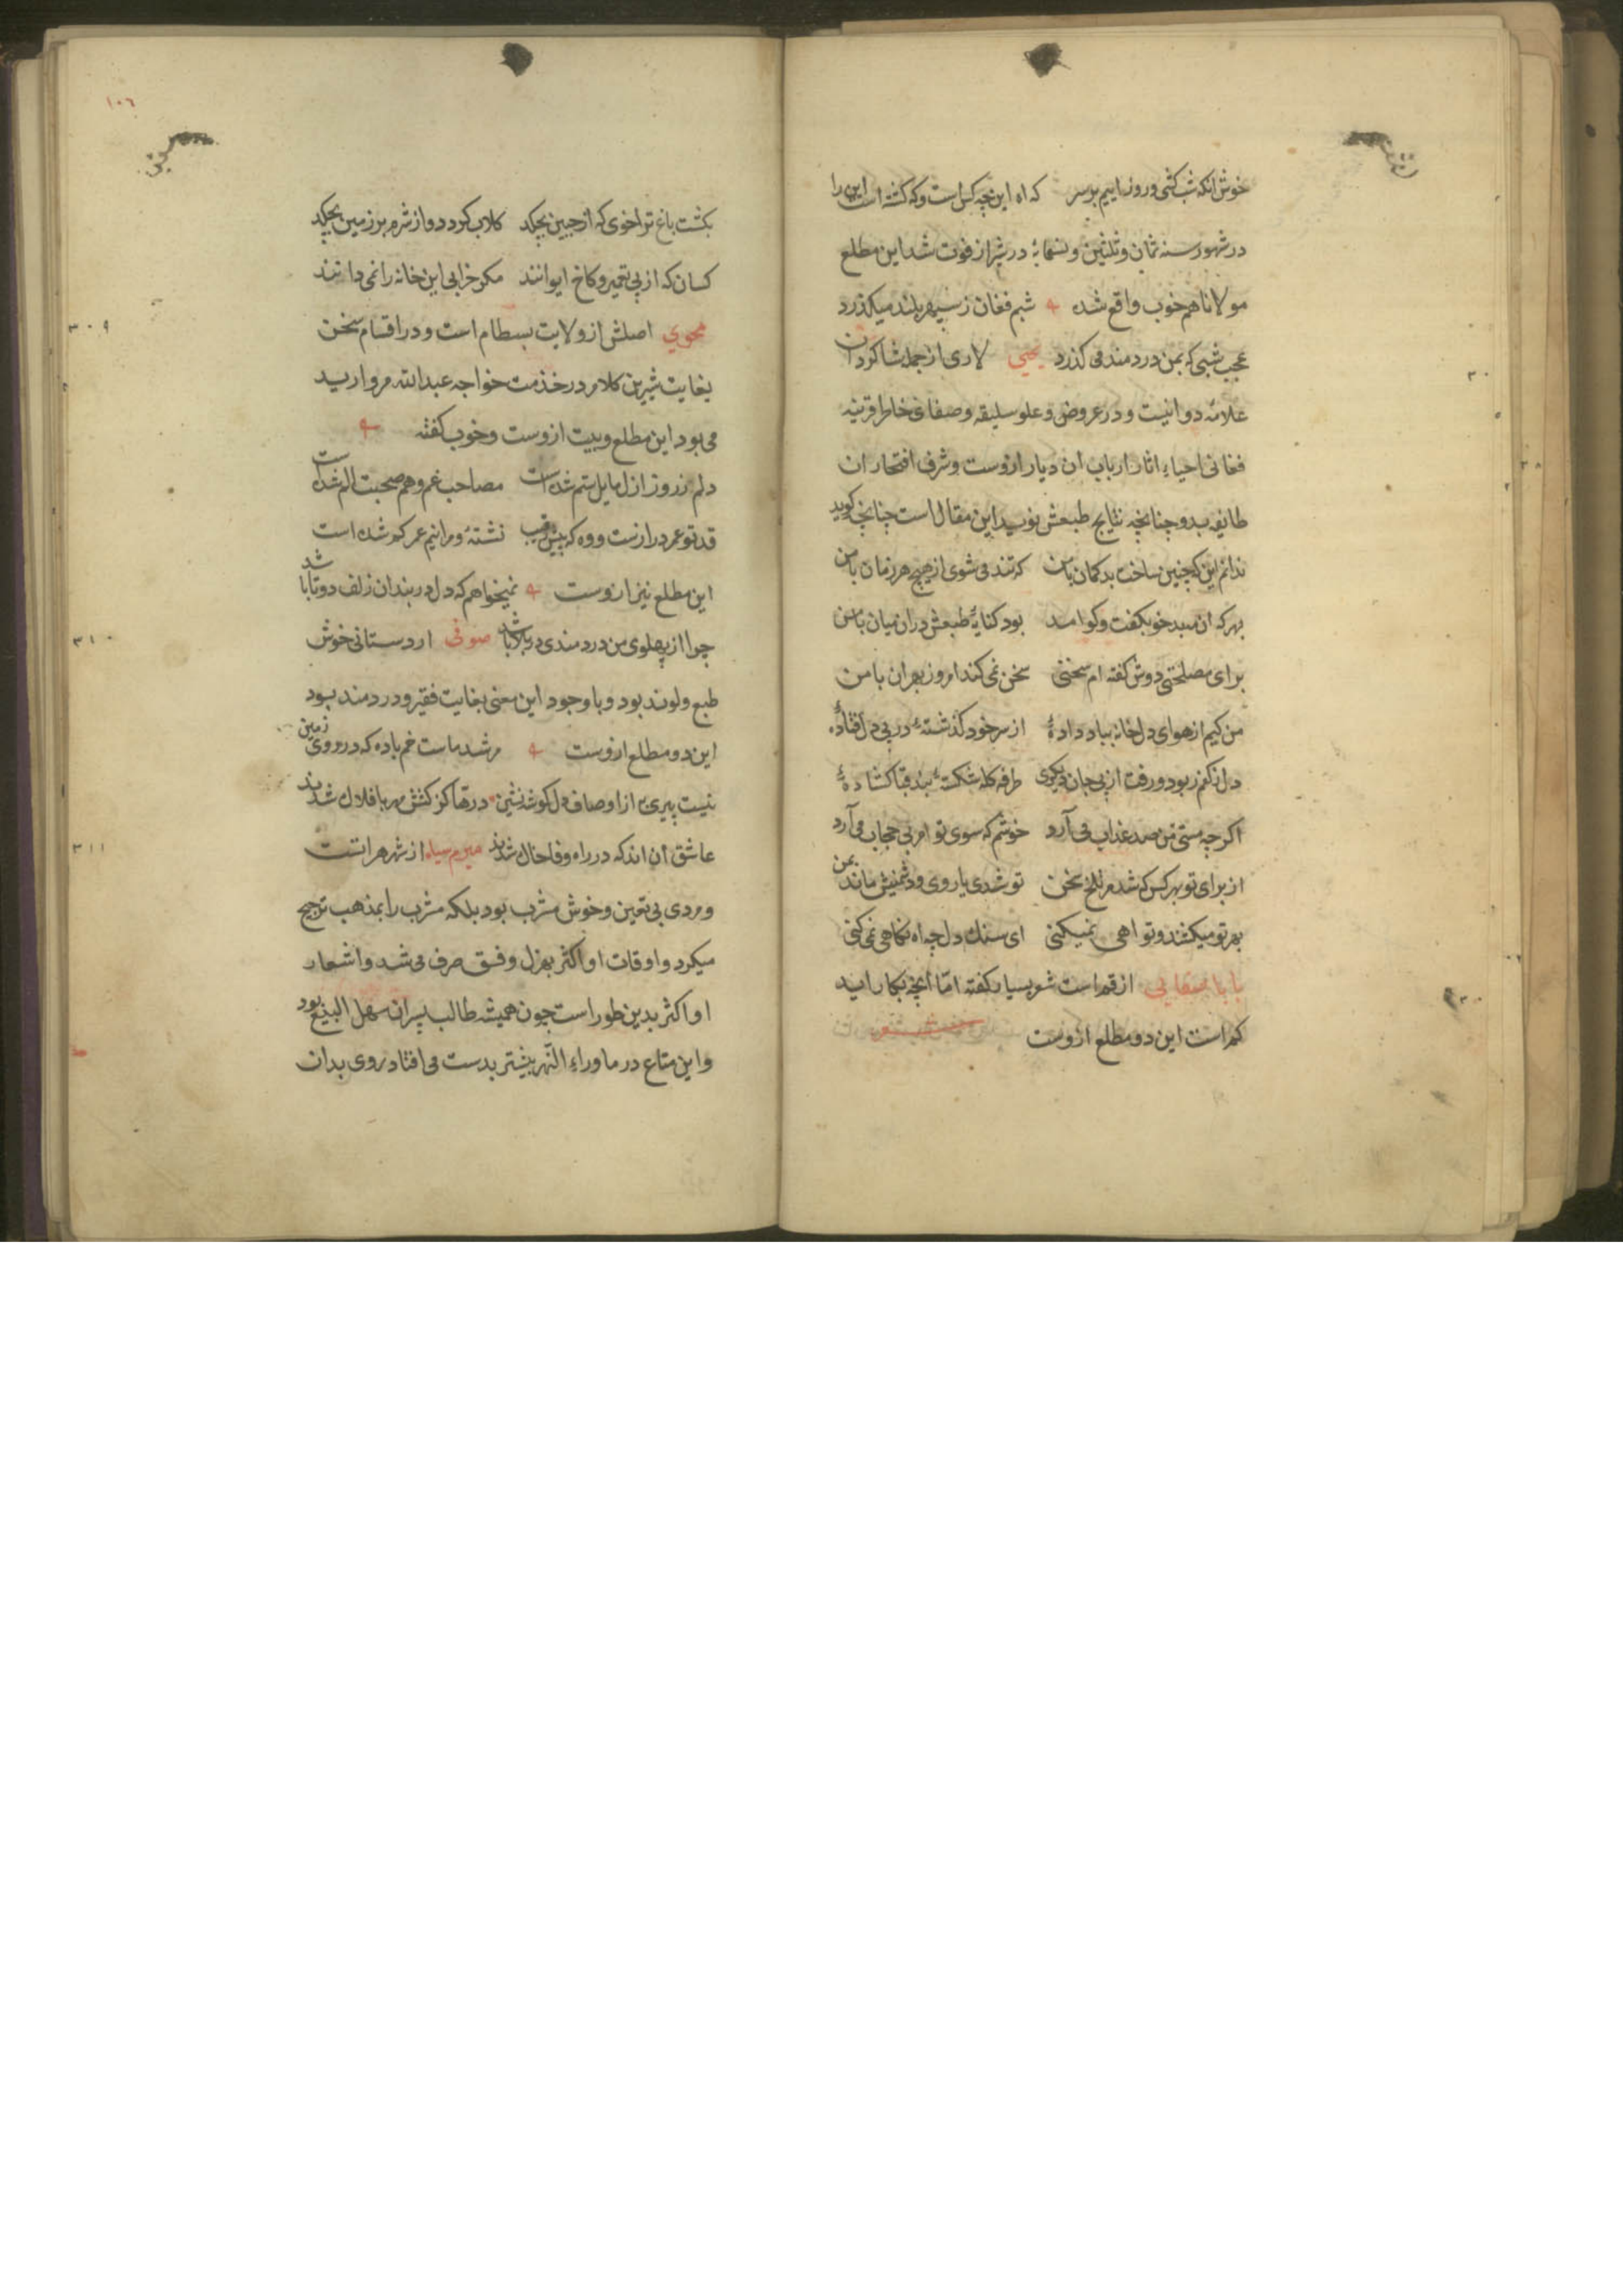 خوش انکه شب کشی و روز اییم بر سر که اه این چه کس است و که کشته است این را
در شهور سنه ثمان و ثلثین و تسعمایه در شیراز فوت شد این مطلع
مولانا هم خوب واقع شده شبم فغان ز سپهر بلند میکذرد
عجب شبی که بمن دردمند می کذرد یحیی لاری از جمله شاکردان
علامه دوانیست و در عروض و علو سلیقه و صفای خاطر قرینه
فغانی احیاء اثار ارباب ان دیار ازوست و شرف افتخار ان
طایفه بدو چنانچه نتایج طبعش نوید این مقال است چنانچه کوید
ندانم این که چنین ساخت بد کمان با من که تند می شوی از هیچ هر زمان با من
بهر که ان بدخو بکفت و کو امد بود کنایهٔ طبعش دران میان با من
برای مصلحتی دوش کفته ام سخنی سخن نمی کند امروز بهر ان با من
من کیم از هوای دل خانه بباد دادهٔ از سر خود کذشتهٔ در پی دل فتادهٔ
دل ز کفم ربود و رفت از پی جان دیکری طرفه کله شکستهٔ بند قبا کشادهٔ
اکرچه مستی من صد عذاب می آرد خوشم که سوی توام بی حجاب می آرد
از برای تو بهر کس که شدم تلخ سخن تو شدی یار وی و دشمنیش ماند بمن
بهر تو میکشند و تو اهی نمیکنی ای سنک دل چه اه نکاهی نمی کنی
بابا از قم است شعر بسیار کفته اما انچه بکار اید
کم است این دو مطلع ازوست
١٠٦
بکشت باغ ترا خوی که از جبین بچکد کلاب کردد و از شرم بر زمین بچکد
کسان که از پی تعمیر و کاخ ایوانند مکر خرابی این خانه را نمی دانند
محوي اصلش از ولایت بسطام است و در اقسام سخن
٣٠٩
بغایت شیرین کلام در خدمت خواجه عبدالله مروارید
می بود این مطلع و بیت ازوست و خوب کفته
دلم ز روز ازل مایل ستم شده است مصاحب غم و هم صحبت الم شده است
قد تو عمر درازست و وه که پیش رقیب نشستهٔ و مرا نیم عمر کم شده است
این مطلع نیز ازوست نمیخواهم که دل در بند ان زلف دوتا باشد
چرا از پهلوی من دردمندی در بلا باشد صوفی اردستانی خوش
٣١٠
طبع و لوند بود و با وجود این معنی بغایت فقیر و دردمند بود
این دو مطلع ازوست مرشد ماست خم باده که در روی زمین
نیست پیری از اوصاف دل کوشه نشین
عاشق ان اند که در راه وفا خاک شدند میرم سیاه از شهر هراتست
٣١١
و مردی بی تعین و خوش مشرب بود بلکه مشرب را بمذهب ترجیح
میکرد و اوقات او اکثر بهزل و فسق صرف می شد و اشعار
او اکثر بدین طور است چون همیشه طالب پسران سهل البیع بود
و این متاع در ماوراء النهر بیشتر بدست می افتاد روی بدان